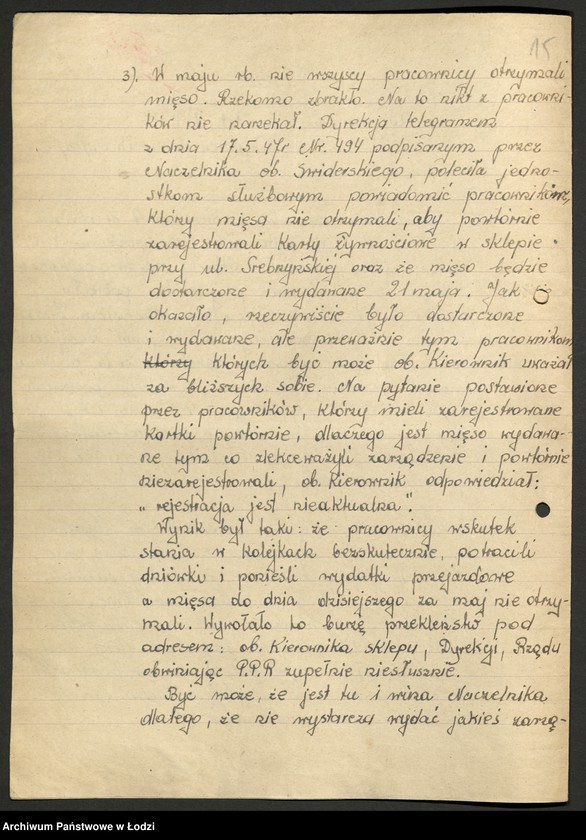 15
3). W maju rb. nie wszyscy pracownicy otrzymali
mięso. Rzekomo zbrakło. Na to nikt z pracowni-
ków nie narzekał. Dyrekcja telegramem
z dnia 17.5.47r Nr. 494 podpisanym przez
Naczelnika ob. Świderskiego, poleciła jedno-
stkom służbowym powiadomić pracowników,
którzy mięsa nie otrzymali, aby powtórnie
zarejestrowali Karty Żywnościowe w sklepie
przy ul. Srebrzyńskiej oraz że mięso będzie
dostarczone i wydawane 21 maja. Jak się
okazało, rzeczywiście było dostarczone
i wydawane, ale przeważnie tym pracownikom
którzy których być może ob. Kierownik uważał
za bliższych sobie. Na pytanie postawione
przez pracowników, którzy mieli zarejestrowane
kartki powtórnie, dlaczego jest mięso wydawa-
ne tym co zlekceważyli zarządzenie i powtórnie
niezarejestrowali, ob. Kierownik odpowiedział:
„rejestracja jest nieaktualna".
Wynik był taki: że pracownicy wskutek
stania w kolejkach bezskutecznie, potracili
dniówki i ponieśli wydatki przejazdowe
a mięsa do dnia dzisiejszego za maj nie otrzy-
mali. Wywołało to burzę przekleństw pod
adresem: ob. Kierownika sklepu, Dyrekcji, Rządu
obwiniając P.P.R zupełnie niesłusznie.
Być może, że jest tu i wina Naczelnika
dlatego, że nie wystarczy wydać jakieś zarzą-
Archiwum Państwowe w Łodzi